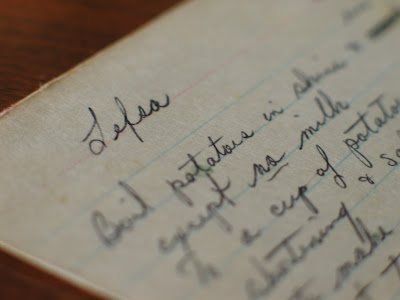 Lefsa
Boil potatoes in skins &
except no milk
To a cup of potatoes
shortening & sa
to make